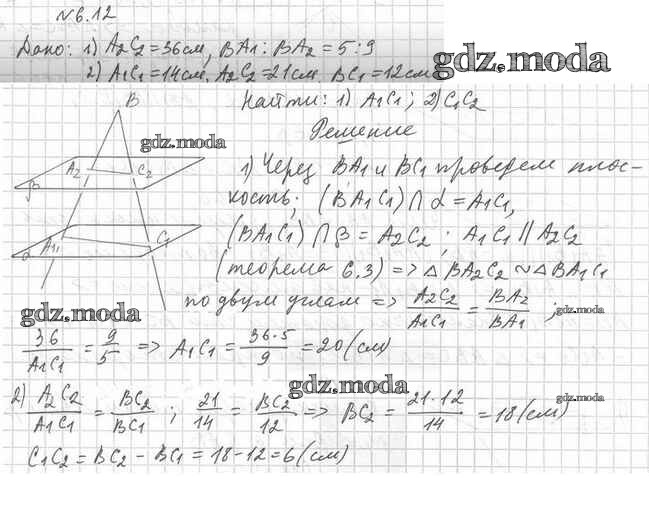 №6.12
Дано: 1) A₂C₂ = 36см, BA₁ : BA₂ = 5 : 9
2) A₁C₁ = 14см, A₂C₂ = 21см, BC₁ = 12см
gdz.moda
Найти: 1) A₁C₁ ; 2) C₁C₂
Решение
B
gdz.moda
A₂
C₂
β
A₁
C₁
α
1) Через BA₁ и BC₁ проведем плос-
кость; (BA₁C₁) ∩ α = A₁C₁,
(BA₁C₁) ∩ β = A₂C₂ ; A₁C₁ ∥ A₂C₂
(теорема 6.3) => △BA₂C₂ ~ △BA₁C₁
по двум углам => A₂C₂/A₁C₁ = BA₂/BA₁ ;
gdz.moda
gdz.moda
36/A₁C₁ = 9/5 => A₁C₁ = 36·5/9 = 20 (см)
gdz.moda
2) A₂C₂/A₁C₁ = BC₂/BC₁ ; 21/14 = BC₂/12 => BC₂ = 21·12/14 = 18 (см)
gdz.moda
C₁C₂ = BC₂ - BC₁ = 18 - 12 = 6 (см)